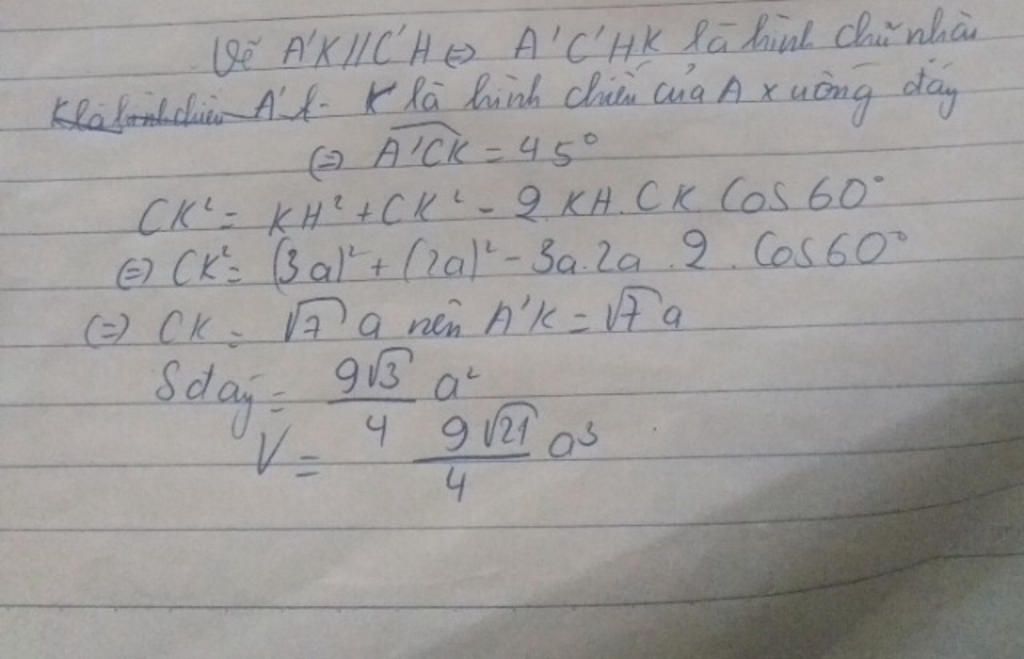 Vẽ A'K//C'H ⇔ A'C'HK là hình chữ nhật
K là hình chiếu A' K là hình chiếu của A xuống đáy
⇔ A'CK = 45°
CK² = KH² + CK² - 2.KH.CK Cos60°
⇔ CK² = (3a)² + (2a)² - 3a.2a.2.Cos60°
⇔ CK = √7 a nên A'K = √7 a
S đáy = 9√3/4 a²
V = 9√21/4 a³